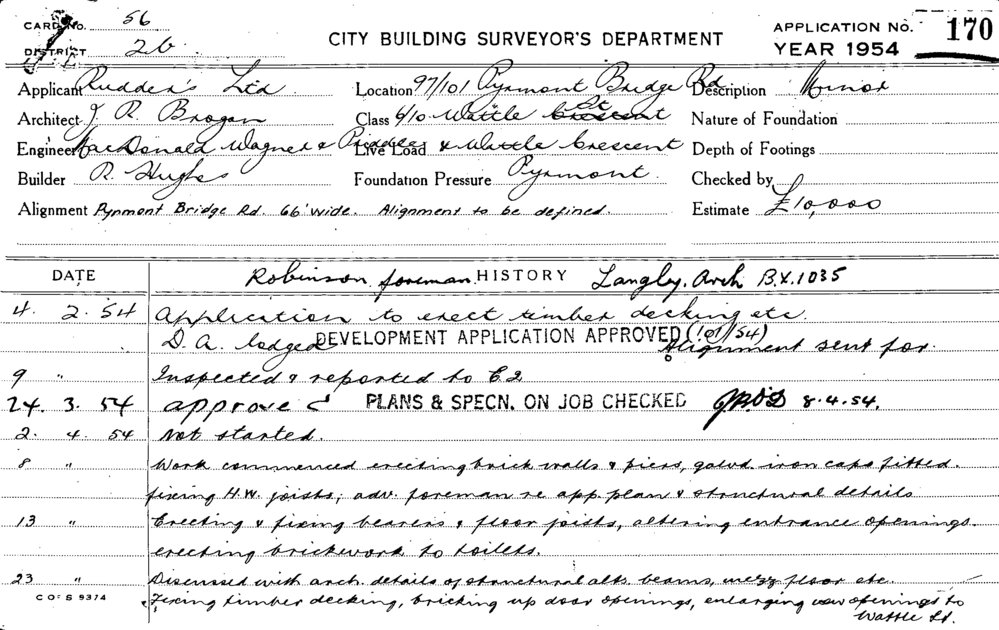 CARD No. 56
DISTRICT 26
CITY BUILDING SURVEYOR'S DEPARTMENT
APPLICATION No. 170
YEAR 1954
Applicant Rudder's Ltd Location 97/101 Pyrmont Bridge Rd Description Minor
Architect J. R. Brogan Class 6/10 Wattle Crescent St Nature of Foundation
Engineer MacDonald Wagner & Priddle Live Load & Wattle Crescent Depth of Footings
Builder R. Hughes Foundation Pressure Pyrmont. Checked by
Alignment Pyrmont Bridge Rd. 66' wide. Alignment to be defined. Estimate £10,000
DATE Robinson foreman. HISTORY Langley. Arch B.X.1035
4. 2. 54 Application to erect timber decking etc.
D.A. lodged DEVELOPMENT APPLICATION APPROVED (101/54) Alignment sent for.
9 " Inspected & reported to C.2
24. 3. 54 approved PLANS & SPECN. ON JOB CHECKED 8.4.54.
2. 4. 54 Not started.
8 " Work commenced erecting brick walls & piers, galvd. iron caps fitted.
fixing H.W. joists; adv. foreman re app. plan & structural details
13 " Erecting & fixing bearers & floor joists, altering entrance openings.
erecting brickwork to toilets.
23 " Discussed with arch. details of structural alts. beams, mezz floor etc.
C OF S 9374 Fixing timber decking, bricking up door openings, enlarging openings to
Wattle St.